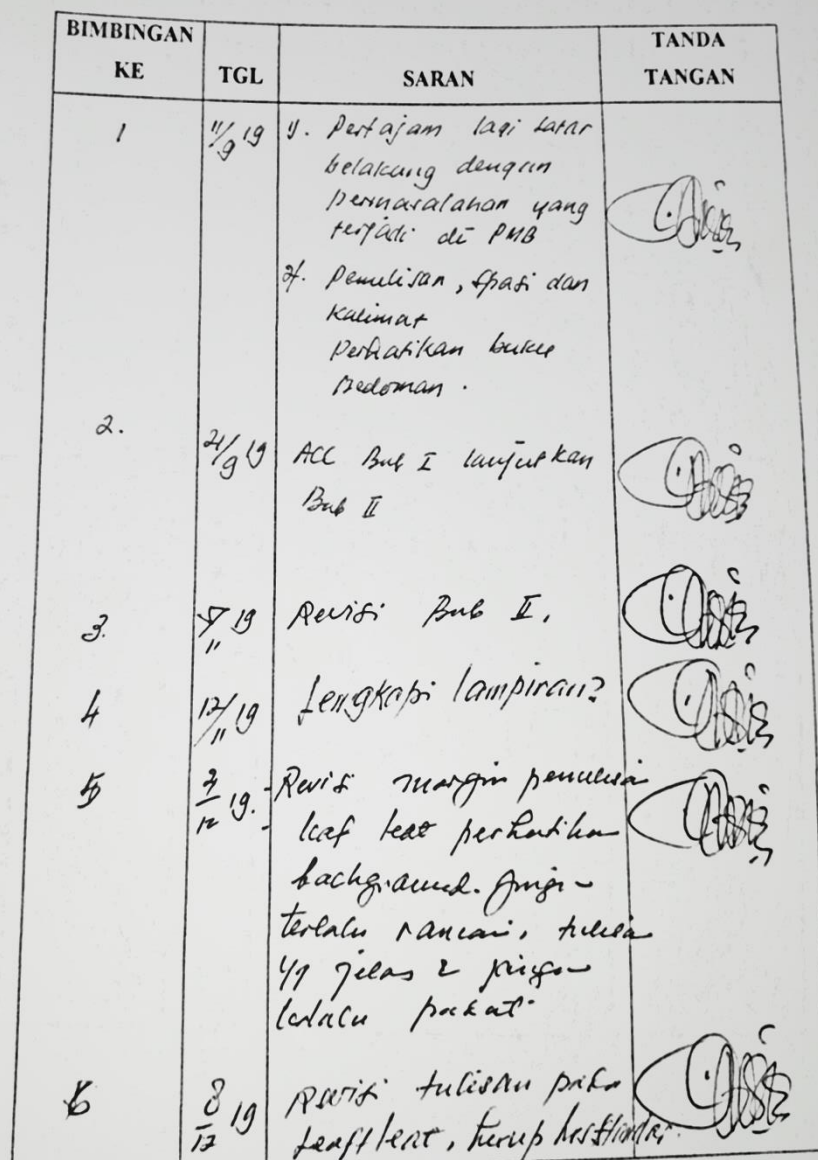 BIMBINGAN KE TGL SARAN TANDA TANGAN
1 11/9 19 1). Pertajam lagi latar
belakang dengan
permasalahan yang
terjadi di PMB
2). Penulisan, spasi dan
kalimat
Perhatikan buku
Pedoman.
2. 21/9 19 ACC Bab I lanjutkan
Bab II
3. 5/11 19 Revisi Bab II.
4 12/11 19 Lengkapi lampiran?
5 19. Revisi margin penulisan
leaf leat perhatikan
background.
terlalu tulisan
yg jelas &
terlalu
6 8/12 19 Revisi tulisan pada
leaffleat,